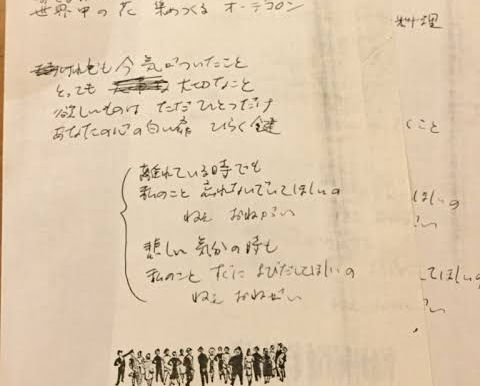 世界中の花 集めつくる オーデコロン
けれども今 気がついたこと
とっても 大切なこと
欲しいものは ただひとつだけ
あなたの心の白い扉 ひらく鍵
離れている時でも
私のこと 忘れないでいてほしいの
ねえ おねがい
悲しい気分の時も
私のこと すぐに よびだしてほしいの
ねえ おねがい
料理
くこと
ほしいの
い
てほしいの
い